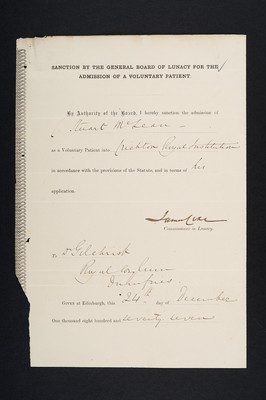 SANCTION BY THE GENERAL BOARD OF LUNACY FOR THE
ADMISSION OF A VOLUNTARY PATIENT.
By Authority of the Board, I hereby sanction the admission of
Stuart McLean
as a Voluntary Patient into Crichton Royal Institution
in accordance with the provisions of the Statute, and in terms of his
application.
James Coxe
Commissioner in Lunacy.
To Dr Gilchrist
Royal Asylum
Dumfries
Given at Edinburgh, this 24th day of December
One thousand eight hundred and seventy seven